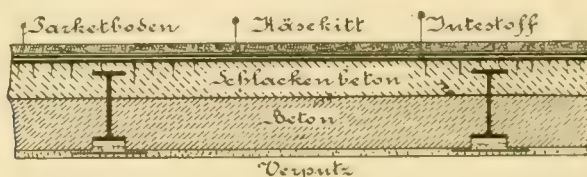 Parketboden Käsekitt Jutestoff
Schlackenbeton
Beton
Verputz